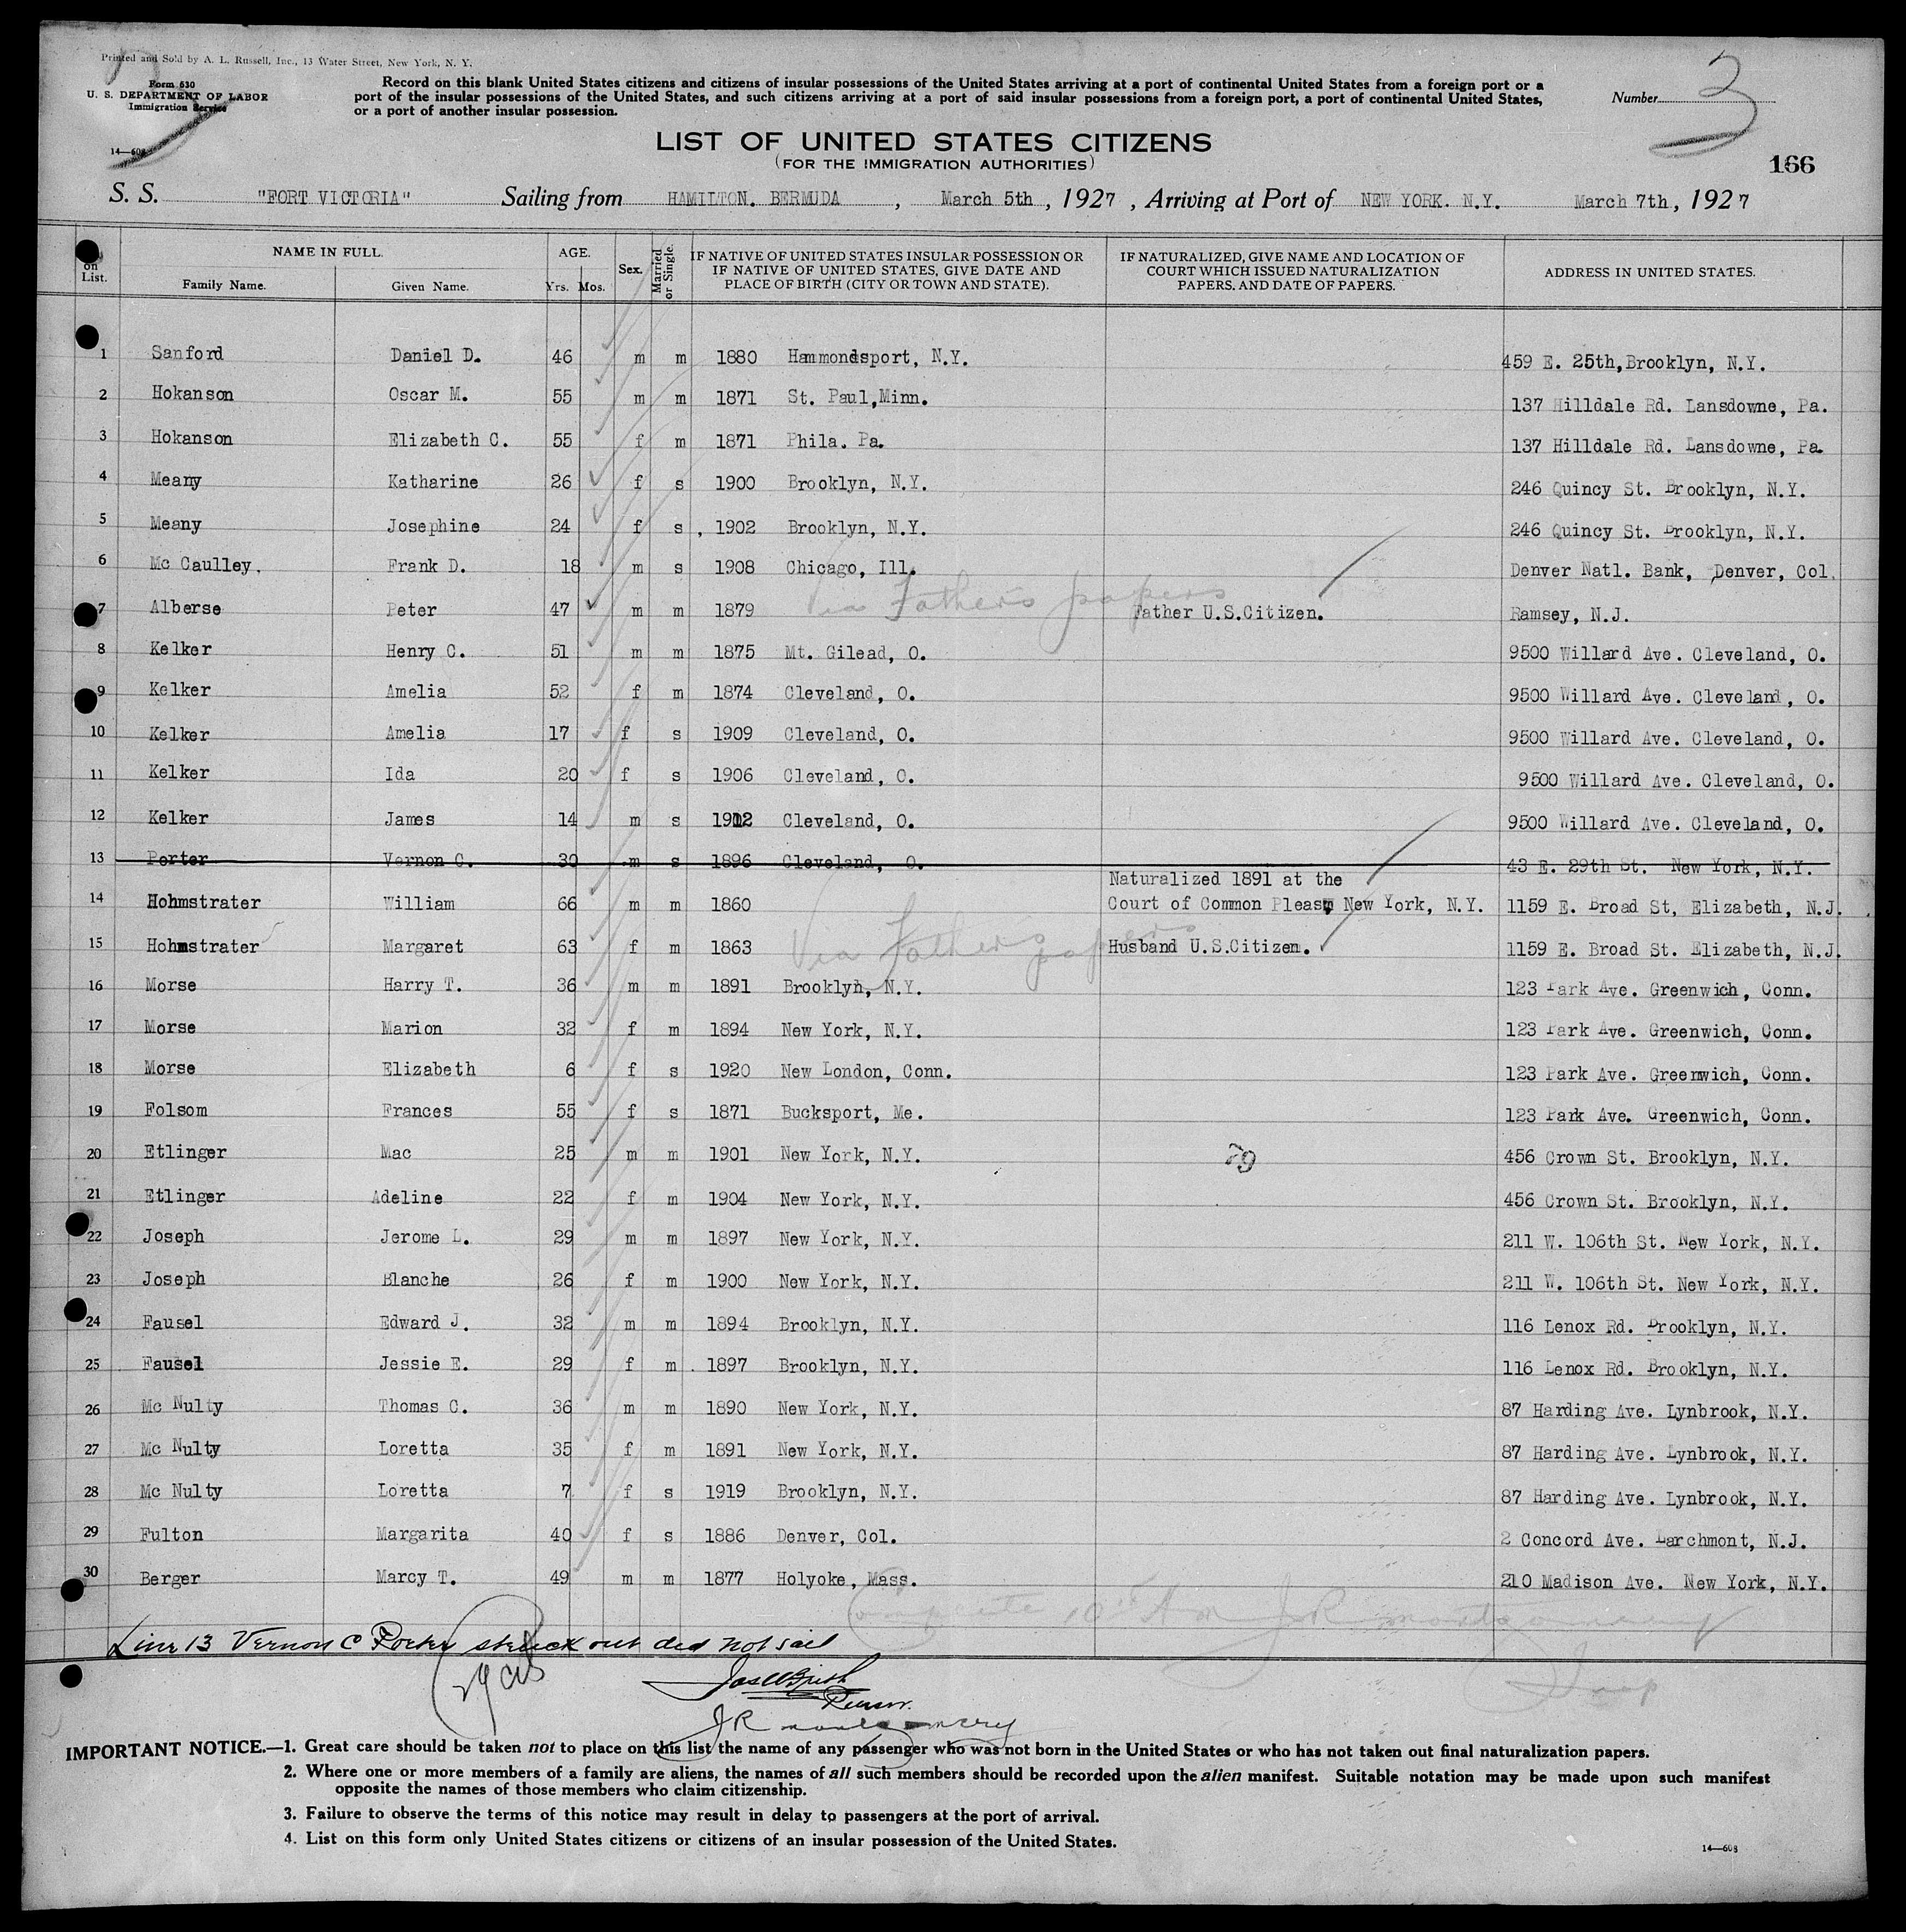 Printed and Sold by A. L. Russell, Inc., 13 Water Street, New York, N. Y.
Form 630
U. S. DEPARTMENT OF LABOR
Immigration Service
14—608
Record on this blank United States citizens and citizens of insular possessions of the United States arriving at a port of continental United States from a foreign port or a
port of the insular possessions of the United States, and such citizens arriving at a port of said insular possessions from a foreign port, a port of continental United States,
or a port of another insular possession.
Number 3
LIST OF UNITED STATES CITIZENS
(FOR THE IMMIGRATION AUTHORITIES)
166
S. S. "FORT VICTORIA" Sailing from HAMILTON. BERMUDA , March 5th , 1927 , Arriving at Port of NEW YORK. N.Y. March 7th, 1927
on List. NAME IN FULL. Family Name. Given Name. AGE. Yrs. Mos. Sex. Married or Single. IF NATIVE OF UNITED STATES INSULAR POSSESSION OR IF NATIVE OF UNITED STATES, GIVE DATE AND PLACE OF BIRTH (CITY OR TOWN AND STATE). IF NATURALIZED, GIVE NAME AND LOCATION OF COURT WHICH ISSUED NATURALIZATION PAPERS, AND DATE OF PAPERS. ADDRESS IN UNITED STATES.
1 Sanford Daniel D. 46 m m 1880 Hammondsport, N.Y. 459 E. 25th,Brooklyn, N.Y.
2 Hokanson Oscar M. 55 m m 1871 St. Paul,Minn. 137 Hilldale Rd. Lansdowne, Pa.
3 Hokanson Elizabeth C. 55 f m 1871 Phila. Pa. 137 Hilldale Rd. Lansdowne, Pa.
4 Meany Katharine 26 f s 1900 Brooklyn, N.Y. 246 Quincy St. Brooklyn, N.Y.
5 Meany Josephine 24 f s , 1902 Brooklyn, N.Y. 246 Quincy St. Brooklyn, N.Y.
6 Mc Caulley. Frank D. 18 m s 1908 Chicago, Ill. Denver Natl. Bank, Denver, Col.
Via Father's papers
7 Alberse Peter 47 m m 1879 Father U.S.Citizen. Ramsey, N.J.
8 Kelker Henry C. 51 m m 1875 Mt. Gilead, O. 9500 Willard Ave. Cleveland, O.
9 Kelker Amelia 52 f m 1874 Cleveland, O. 9500 Willard Ave. Cleveland, O.
10 Kelker Amelia 17 f s 1909 Cleveland, O. 9500 Willard Ave. Cleveland, O.
11 Kelker Ida 20 f s 1906 Cleveland, O. 9500 Willard Ave. Cleveland, O.
12 Kelker James 14 m s 1912 Cleveland, O. 9500 Willard Ave. Cleveland, O.
13 Porter Vernon C. 30 m s 1896 Cleveland, O. 43 E. 29th St. New York, N.Y.
Naturalized 1891 at the
14 Hohmstrater William 66 m m 1860 Court of Common Pleas, New York, N.Y. 1159 E. Broad St, Elizabeth, N.J.
Via Father's papers
15 Hohmstrater Margaret 63 f m 1863 Husband U.S.Citizen. 1159 E. Broad St. Elizabeth, N.J.
16 Morse Harry T. 36 m m 1891 Brooklyn, N.Y. 123 Park Ave. Greenwich, Conn.
17 Morse Marion 32 f m 1894 New York, N.Y. 123 Park Ave. Greenwich, Conn.
18 Morse Elizabeth 6 f s 1920 New London, Conn. 123 Park Ave. Greenwich, Conn.
19 Folsom Frances 55 f s 1871 Bucksport, Me. 123 Park Ave. Greenwich, Conn.
20 Etlinger Mac 25 m m 1901 New York, N.Y. 456 Crown St. Brooklyn, N.Y.
21 Etlinger Adeline 22 f m 1904 New York, N.Y. 456 Crown St. Brooklyn, N.Y.
22 Joseph Jerome L. 29 m m 1897 New York, N.Y. 211 W. 106th St. New York, N.Y.
23 Joseph Blanche 26 f m 1900 New York, N.Y. 211 W. 106th St. New York, N.Y.
24 Fausel Edward J. 32 m m 1894 Brooklyn, N.Y. 116 Lenox Rd. Brooklyn, N.Y.
25 Fausel Jessie E. 29 f m 1897 Brooklyn, N.Y. 116 Lenox Rd. Brooklyn, N.Y.
26 Mc Nulty Thomas C. 36 m m 1890 New York, N.Y. 87 Harding Ave. Lynbrook, N.Y.
27 Mc Nulty Loretta 35 f m 1891 New York, N.Y. 87 Harding Ave. Lynbrook, N.Y.
28 Mc Nulty Loretta 7 f s 1919 Brooklyn, N.Y. 87 Harding Ave. Lynbrook, N.Y.
29 Fulton Margarita 40 f s 1886 Denver, Col. 2 Concord Ave. Larchmont, N.J.
30 Berger Marcy T. 49 m m 1877 Holyoke, Mass. 210 Madison Ave. New York, N.Y.
JR Montgomery
Line 13 Vernon C Porter struck out did not sail
Purser.
JR Montgomery
IMPORTANT NOTICE.—1. Great care should be taken not to place on this list the name of any passenger who was not born in the United States or who has not taken out final naturalization papers.
2. Where one or more members of a family are aliens, the names of all such members should be recorded upon the alien manifest. Suitable notation may be made upon such manifest
opposite the names of those members who claim citizenship.
3. Failure to observe the terms of this notice may result in delay to passengers at the port of arrival.
4. List on this form only United States citizens or citizens of an insular possession of the United States.
14—608